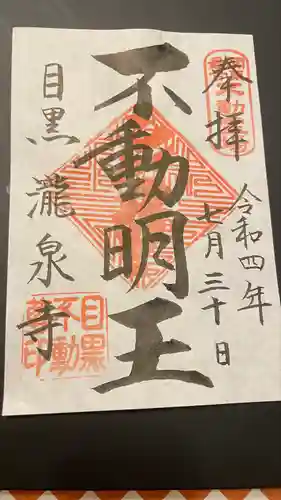 奉拝
令和四年
七月三十日
不動明王
目黒瀧泉寺
目黒
不動